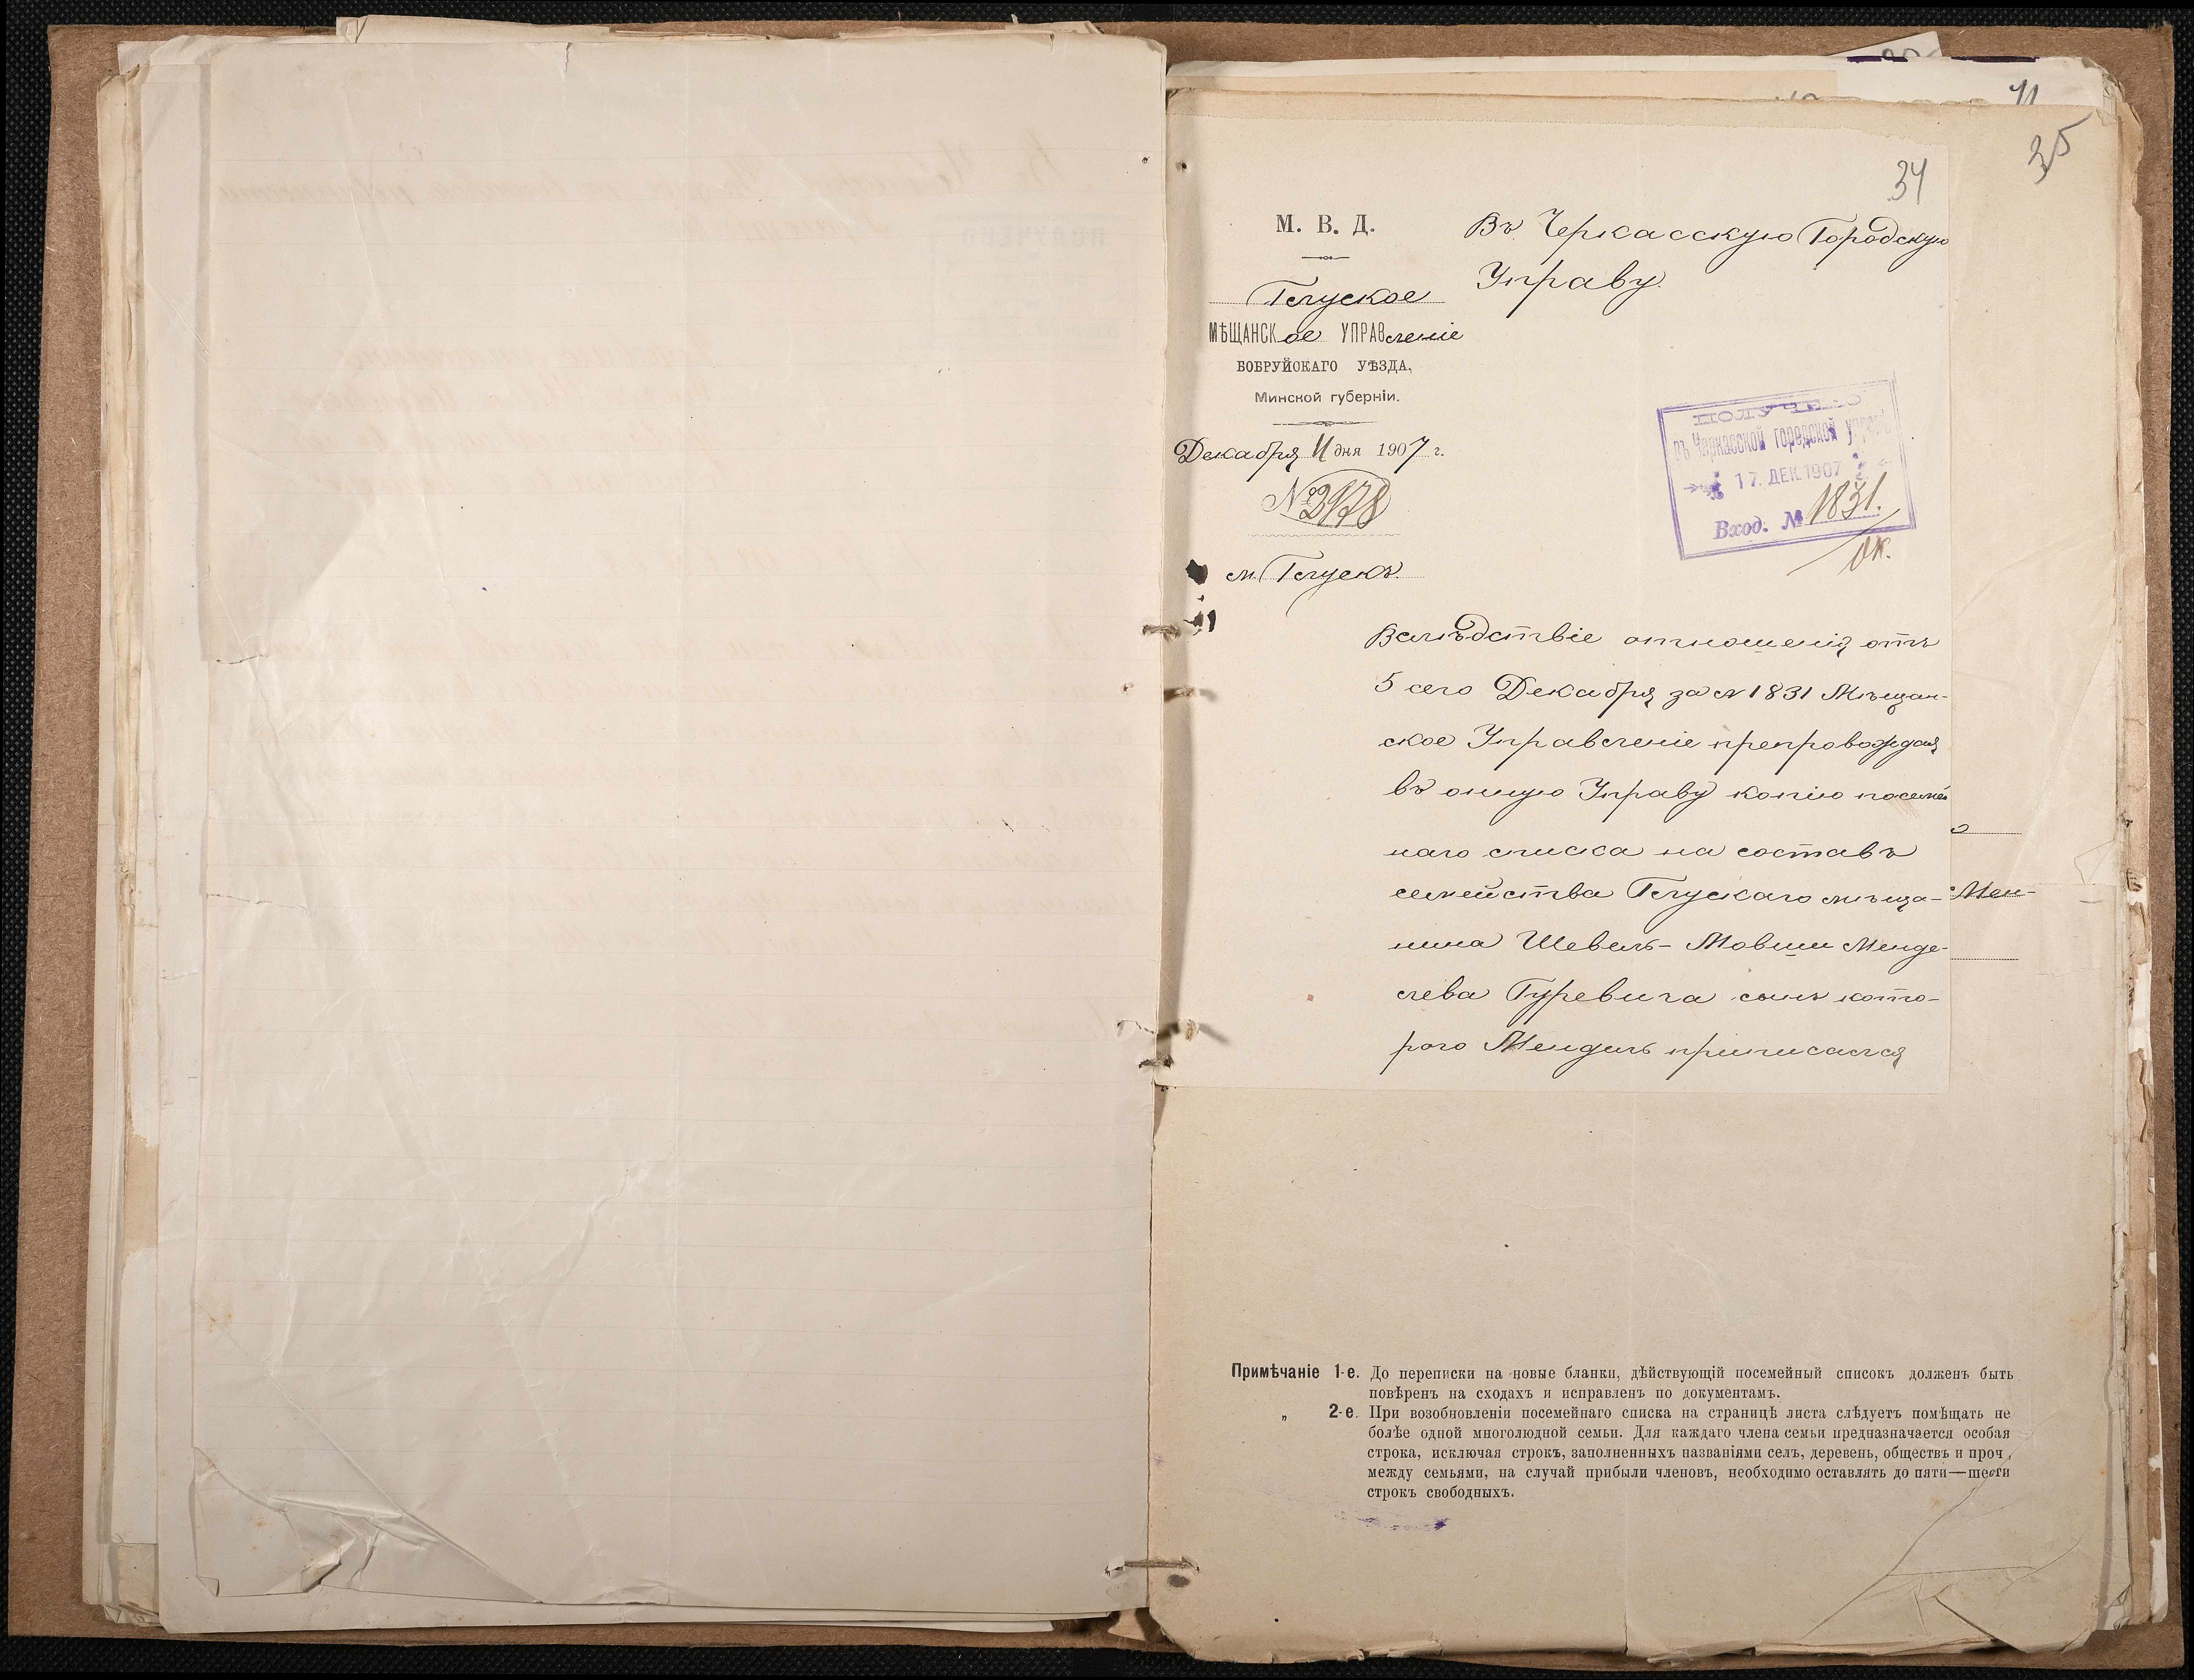 35
34
М. В. Д.
Глуское
МѢЩАНСКое УПРАВленіе
БОБРУЙСКАГО УѢЗДА,
Минской губерніи.
Декабря 11 дня 1907 г.
№ 3178
м. Глускъ.
Въ Черкасскую Городскую
Управу.
ПОЛУЧЕНО
въ Черкасской городской управѣ
17. ДЕК. 1907
Вход. № 1831.
Вслѣдствіе отношенія отъ
5 сего Декабря за № 1831 Мѣщан-
ское Управленіе препровождая
въ оную Управу копію посемей
наго списка на составъ
семейства Глускаго мѣща-
нина Шевель-Мовши Менде-
лева Гуревича сынъ кото-
рого Мендель приписался
Мен-
Примѣчаніе 1-е. До переписки на новые бланки, дѣйствующій посемейный списокъ долженъ быть
повѣренъ на сходахъ и исправленъ по документамъ.
„ 2-е. При возобновленіи посемейнаго списка на страницѣ листа слѣдуетъ помѣщать не
болѣе одной многолюдной семьи. Для каждаго члена семьи предназначается особая
строка, исключая строкъ, заполненныхъ названіями селъ, деревень, обществъ и проч,
между семьями, на случай прибыли членовъ, необходимо оставлять до пяти—шести
строкъ свободныхъ.